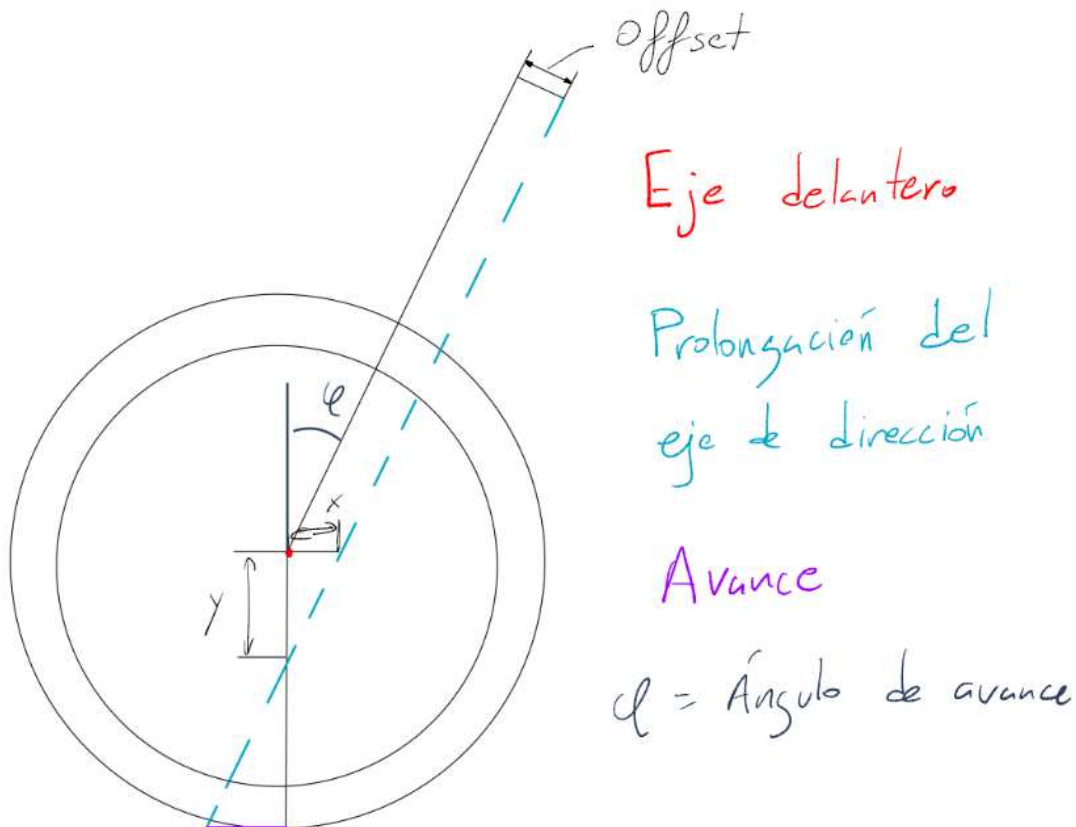 Offset
Eje delantero
Prolongación del
eje de dirección
φ
x
Avance
y
φ = Ángulo de avance